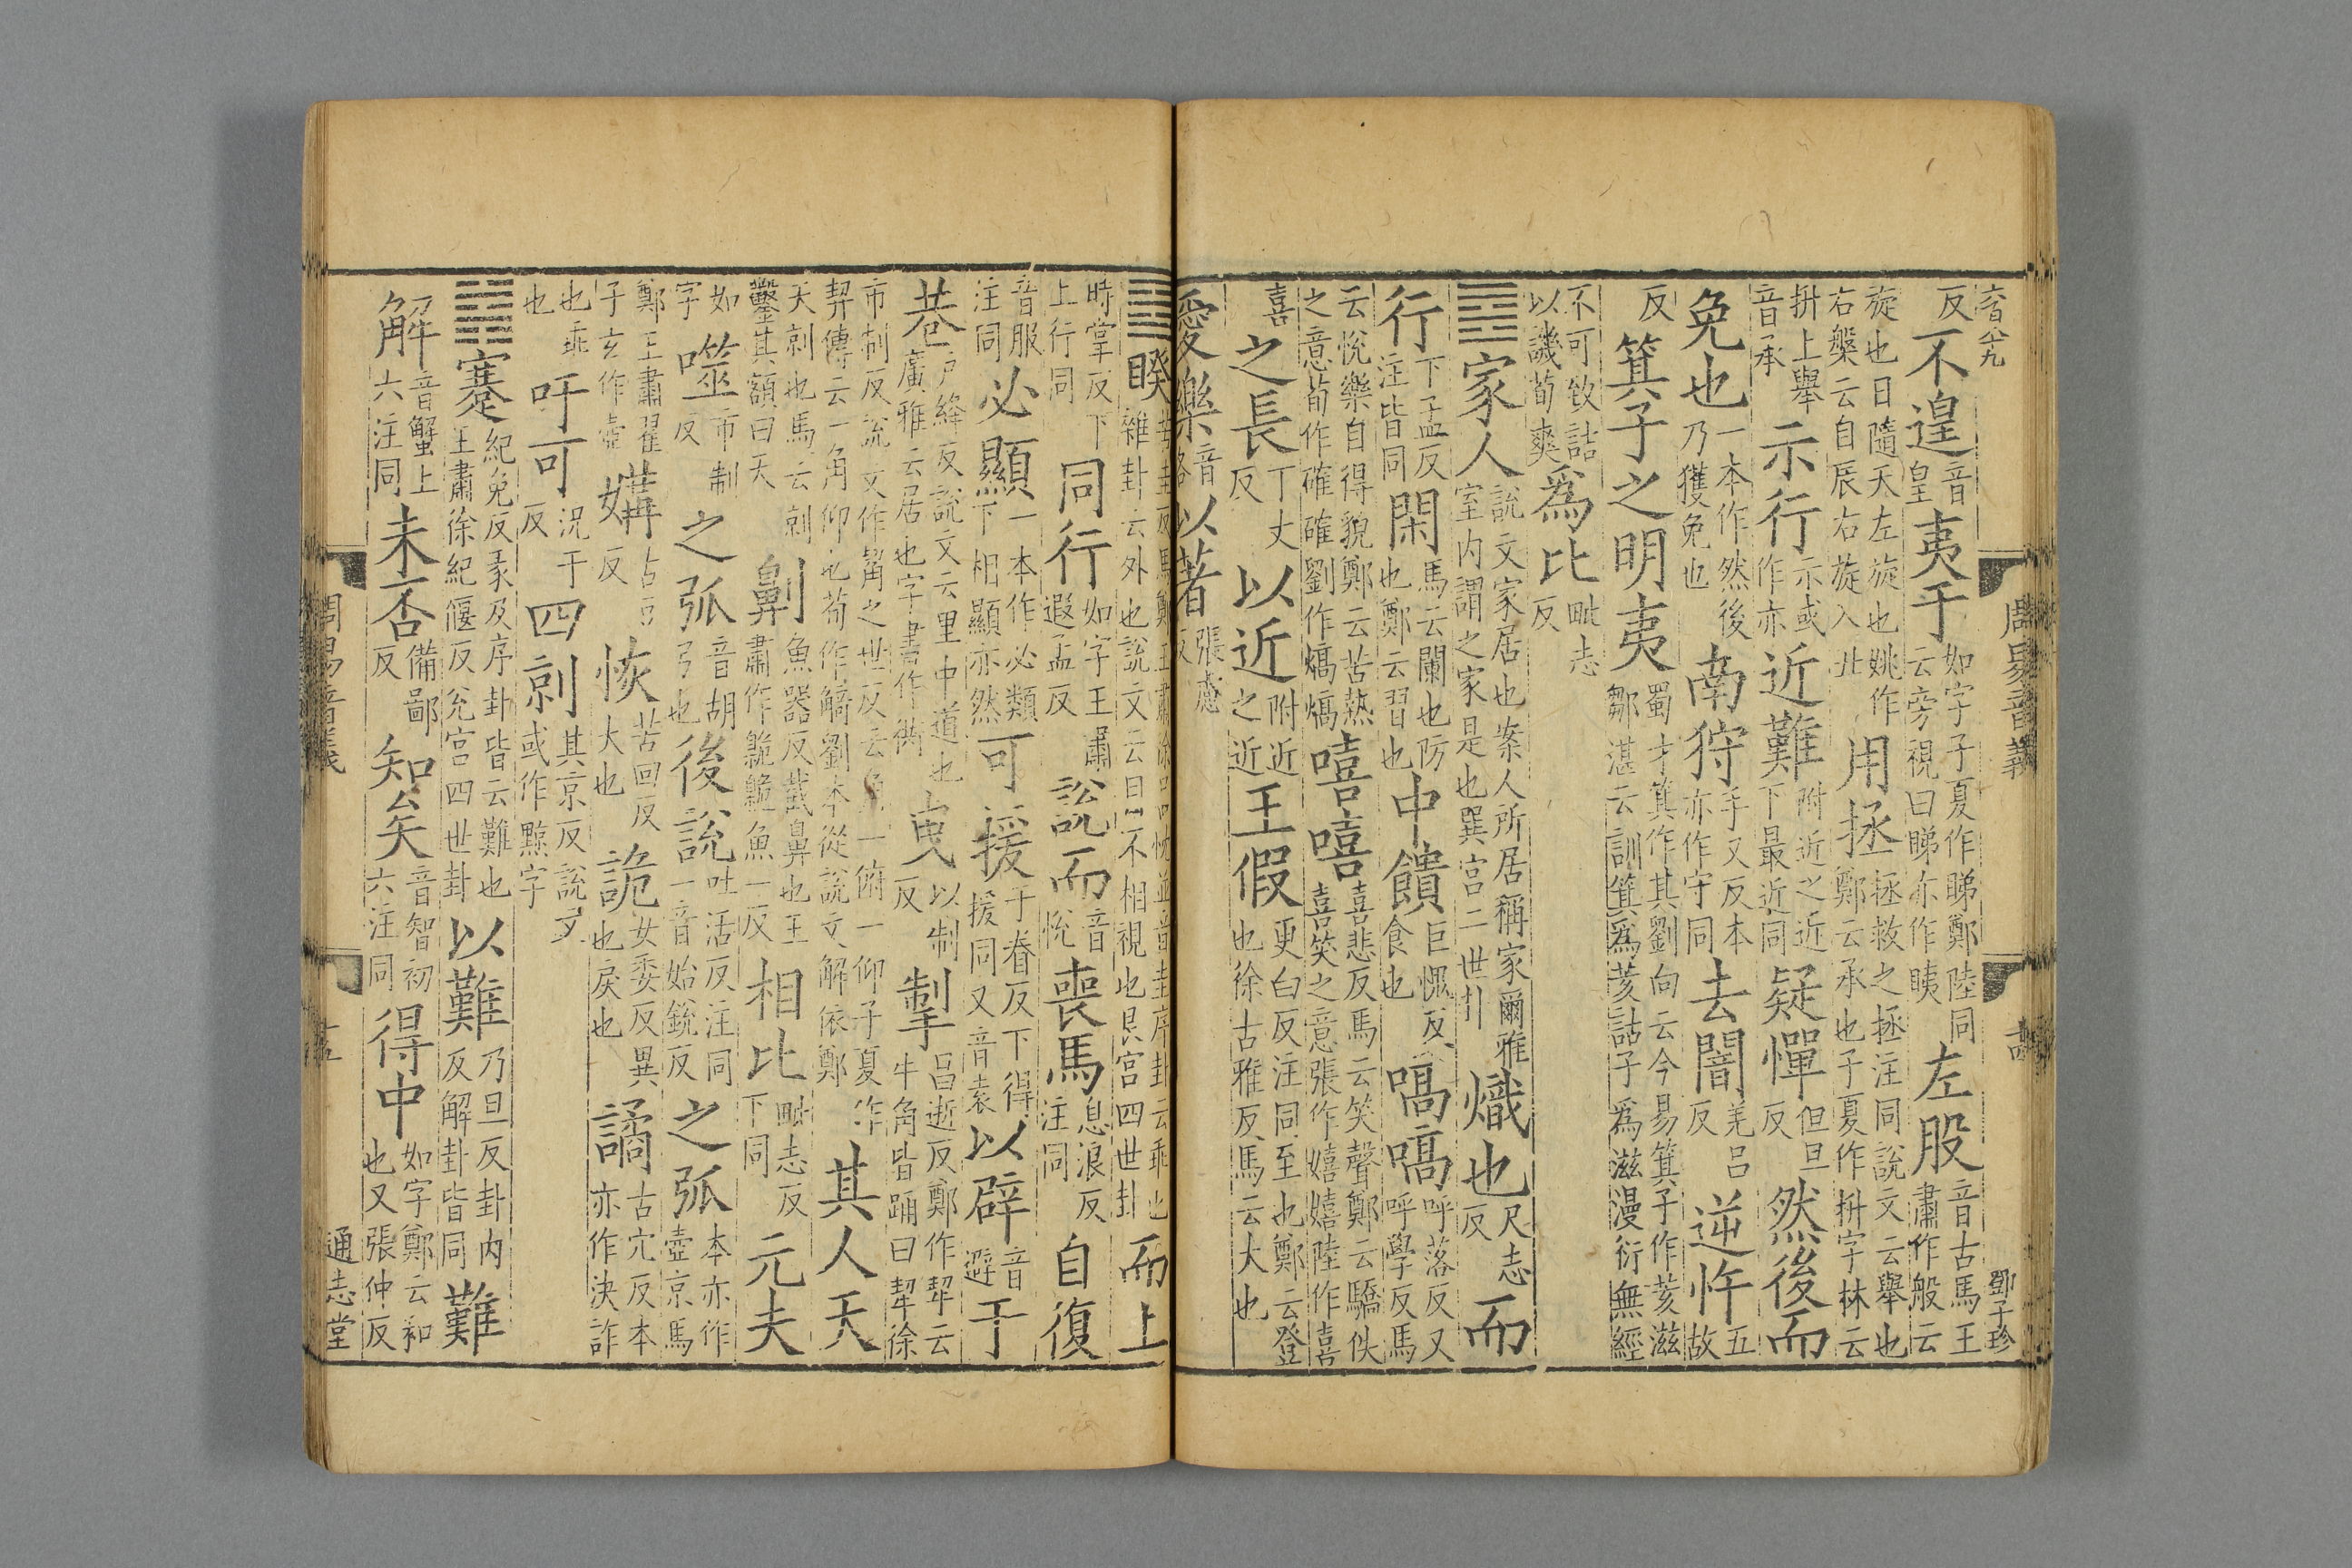 周易音義 十四 鄧子珍
反不遑音皇夷于如字子夏作睇鄭陸同云旁視曰睇亦作眱左股音古馬王肅作般云
旋也日隨天左旋也姚作右槃云自辰右旋入丑用拯拯救之拯注同說文云舉也鄭云承也子夏作抍字林云
抍上舉音承示行示或作亦近難附近之近下最近同疑憚但旦反然後而
免也一本作然後乃獲免也南狩手又反本亦作守同去闇羌呂反逆忤五故
反箕子之明夷蜀才箕作其劉向云今易箕子作荄滋鄒湛云訓箕爲荄詁子爲滋漫衍無經
不可致詰以譏荀爽爲比毗志反
䷤家人說文家居也案人所居稱家爾雅室内謂之家是也巽宫二世卦熾也尺志反而
行下孟反注皆同閑馬云闌也防也鄭云習也中饋巨愧反食也嗃嗃呼落反又呼學反馬
云悅樂自得貌鄭云苦熱之意荀作確確劉作熇熇嘻嘻喜悲反馬云笑聲鄭云驕佚喜笑之意張作嬉嬉陸作喜
喜之長丁丈反以近附近之近王假更白反注同至也鄭云登也徐古雅反馬云大也
愛樂音洛以著張慮反
䷥睽苦圭反馬鄭王肅徐呂忱並音圭序卦云乖也雜卦云外也說文云目不相視也艮宫四世卦而上
時掌反下上行同同行如字王肅遐孟反說而音悅喪馬息浪反注同自復
音服注同必顯一本作必類下相顯亦然可援于眷反下得援同又音袁以辟音避于
巷戶絳反說文云里中道也廣雅云居也字書作衖曳以制反掣昌逝反鄭作挈云牛角皆踊曰挈徐
市制反說文作觢之世反云角一俯一仰子夏作挈傳云一角仰也荀作觭劉本從說文解依鄭其人天
天剠也馬云剠鑿其額曰天劓魚器反截鼻也王肅作臲臲魚一反相比毗志反下同元夫
如字噬市制反之弧音胡弓也後說吐活反注同一音始銳反之弧本亦作壺京馬
鄭王肅翟子玄作壺媾古豆反恢苦回反大也詭女委反異也戾也譎古穴反本亦作決詐
也乖也吁可況于反四剠其京反說文或作黥字
䷦蹇紀免反彖及序卦皆云難也王肅徐紀偃反兌宫四世卦以難乃旦反卦内反解卦皆同難
解音蟹上六注同未否備鄙反知矣音智初六注同得中如字鄭云和也又張仲反
周易音義 十五 通志堂